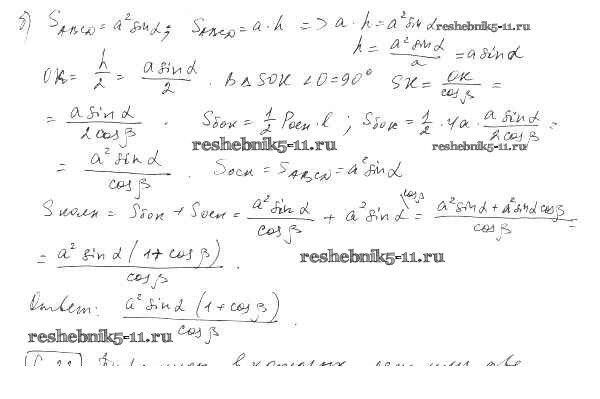 б) S_ABCD = a² sin α; S_ABCD = a · h => a · h = a² sin α reshebnik5-11.ru
h = a² sin α / a = a sin α
OK = h/2 = a sin α / 2 . В Δ SOK ∠O = 90° SK = OK / cos β =
= a sin α / 2 cos β . Sбок = 1/2 Pосн · l ; Sбок = 1/2 · 4a · a sin α / 2 cos β =
reshebnik5-11.ru reshebnik5-11.ru
= a² sin α / cos β . Sосн = S_ABCD = a² sin α
Sполн = Sбок + Sосн = a² sin α / cos β + a² sin α \cos β = a² sin α + a² sin α cos β / cos β =
= a² sin α (1 + cos β) / cos β . reshebnik5-11.ru
Ответ: a² sin α (1 + cos β) / cos β .
reshebnik5-11.ru